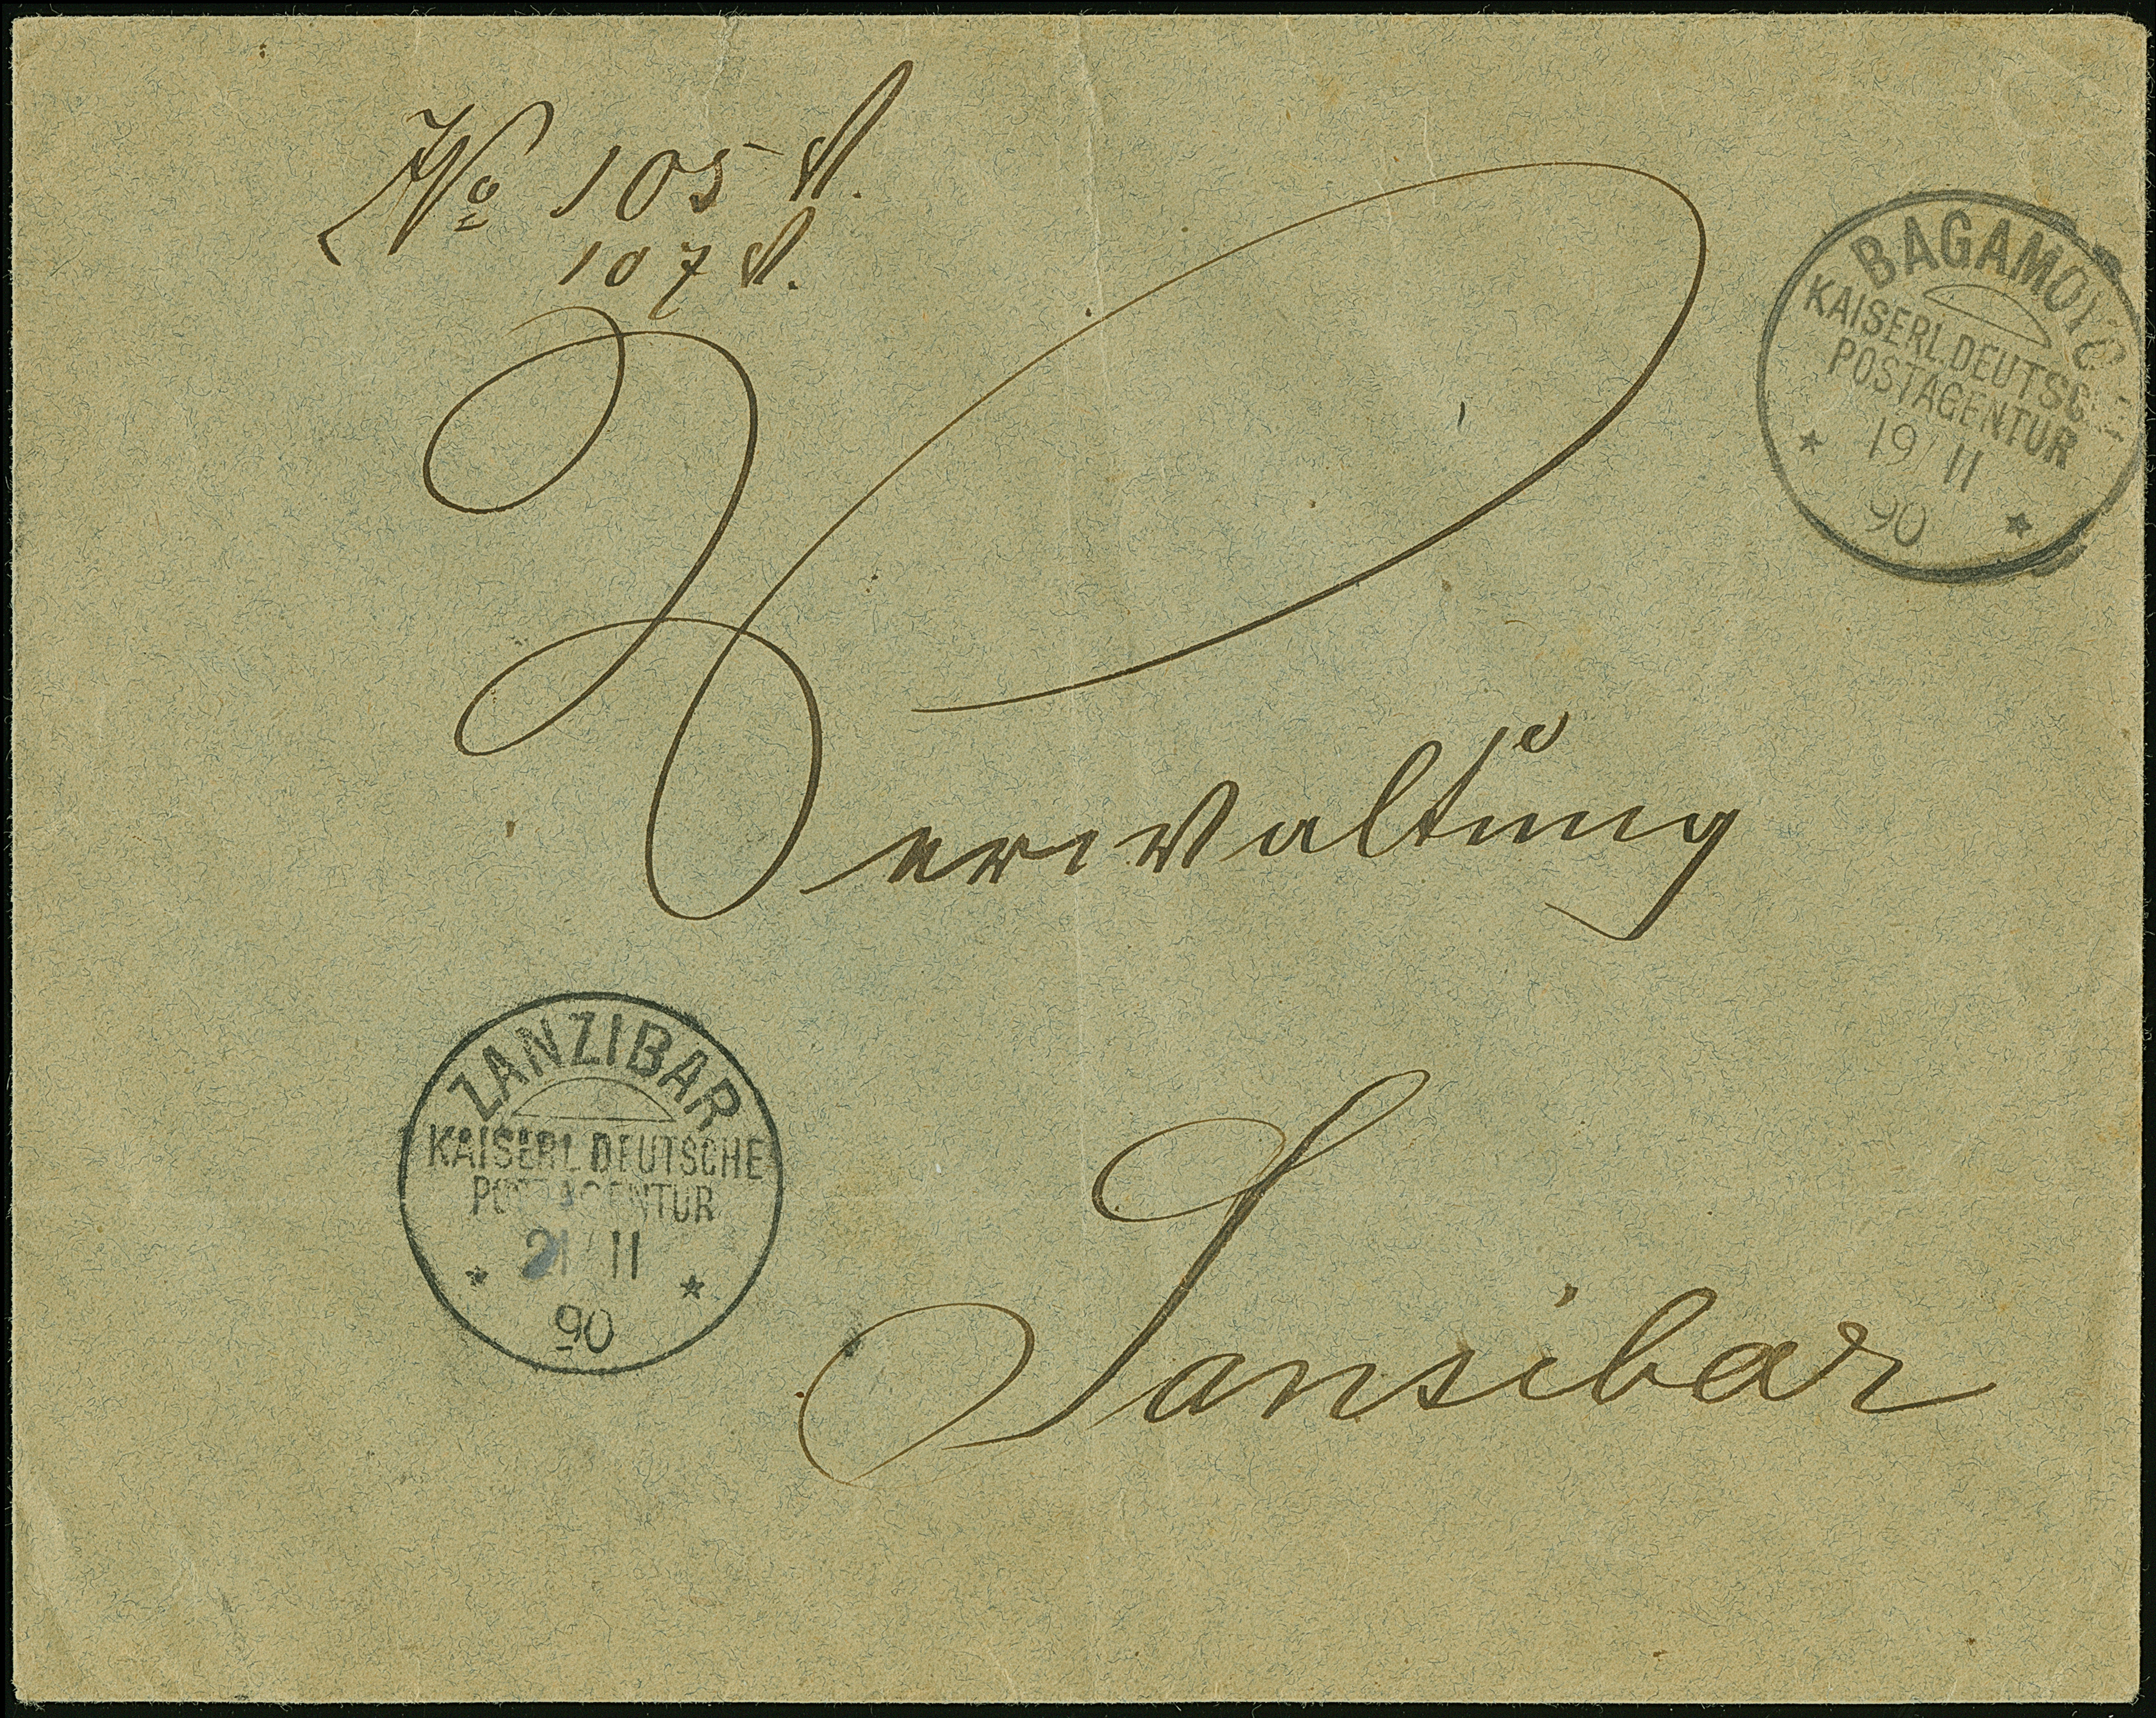 No 105 V.
107 V.
BAGAMOYO
KAISERL.DEUTSCHE
POSTAGENTUR
19/11
90
Verwaltung
ZANZIBAR
KAISERL.DEUTSCHE
POSTAGENTUR
21/11
90
Sansibar